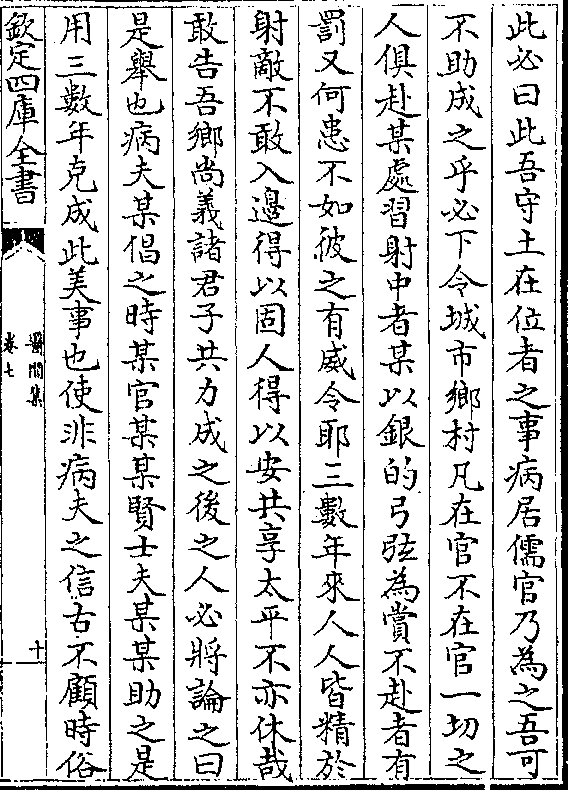 此必曰此吾守土在位者之事病居儒官乃為之吾可
不助成之乎必下令城市鄉村凡在官不在官一切之
人俱赴某處習射中者某以銀的弓弦為賞不赴者有
罰又何患不如彼之有威令耶三數年來人人皆精於
射敵不敢入邊得以固人得以安共享太平不亦休哉
敢告吾鄉尚義諸君子共力成之後之人必將論之曰
是舉也病夫某倡之時某官某某賢士夫某某助之是
用三數年克成此美事也使非病夫之信古不顧時俗
欽定四庫全書
醫閭集
卷七
十